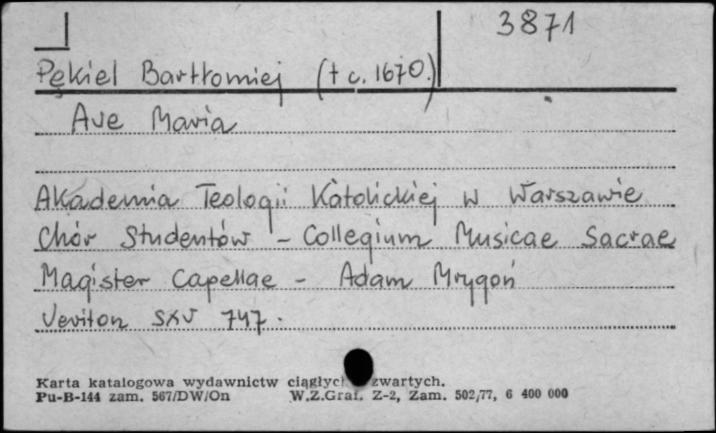 3871
Pękiel Bartłomiej († c. 1670.)
Ave Maria
Akademia Teologii Katolickiej w Warszawie
Chór Studentów - Collegium Musicae Sacrae
Magister Capellae - Adam Mrygoń
Veriton SXV 747.
Karta katalogowa wydawnictw ciągłyc zwartych.
Pu-B-144 zam. 567/DW/On W.Z.Graf. Z-2, Zam. 502/77, 6 400 000